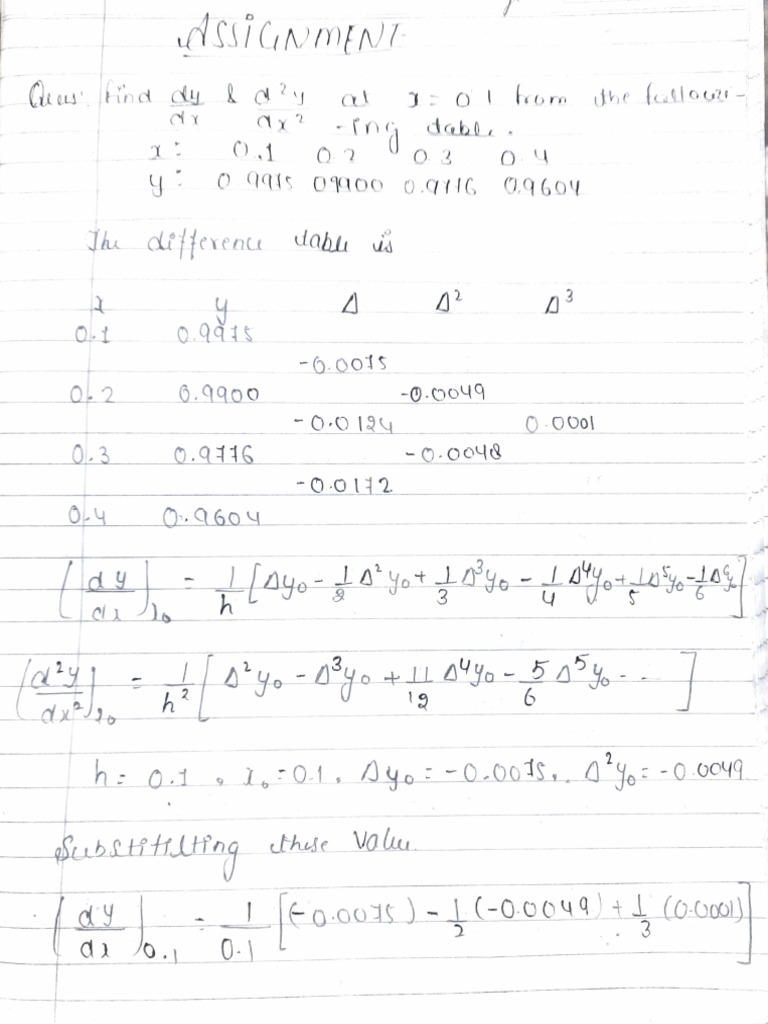 ASSIGNMENT
Ques: find dy/dx & d²y/dx² at x = 0.1 from the followi-
-ing table.
x: 0.1 0.2 0.3 0.4
y: 0.9975 0.9900 0.9776 0.9604
The difference table is
x y Δ Δ² Δ³
0.1 0.9975
-0.0075
0.2 0.9900 -0.0049
-0.0124 0.0001
0.3 0.9776 -0.0048
-0.0172
0.4 0.9604
(dy/dx)x₀ = 1/h [Δy₀ - 1/2 Δ²y₀ + 1/3 Δ³y₀ - 1/4 Δ⁴y₀ + 1/5 Δ⁵y₀ - 1/6 Δ⁶y₀]
(d²y/dx²)x₀ = 1/h² [Δ²y₀ - Δ³y₀ + 11/12 Δ⁴y₀ - 5/6 Δ⁵y₀ ... ]
h = 0.1, x₀ = 0.1, Δy₀ = -0.0075, Δ²y₀ = -0.0049
Substitilting these value
(dy/dx)0.1 = 1/0.1 [(-0.0075) - 1/2 (-0.0049) + 1/3 (0.0001)]